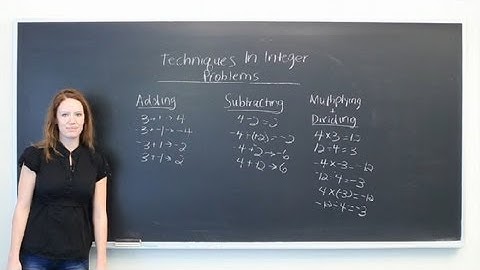 Techniques In Integer
Problems
Adding
3+1→4
-3+-1→-4
-3+1→-2
3+-1→2
Subtracting
4-2=2
-4-(-2)=-2
-4+-2→-6
4+(2→6
Multiplying
+
Dividing
4×3=12
12÷4=3
-4×-3=-12
-12÷4=-3
4×(-3)=-12
-12÷4=-3